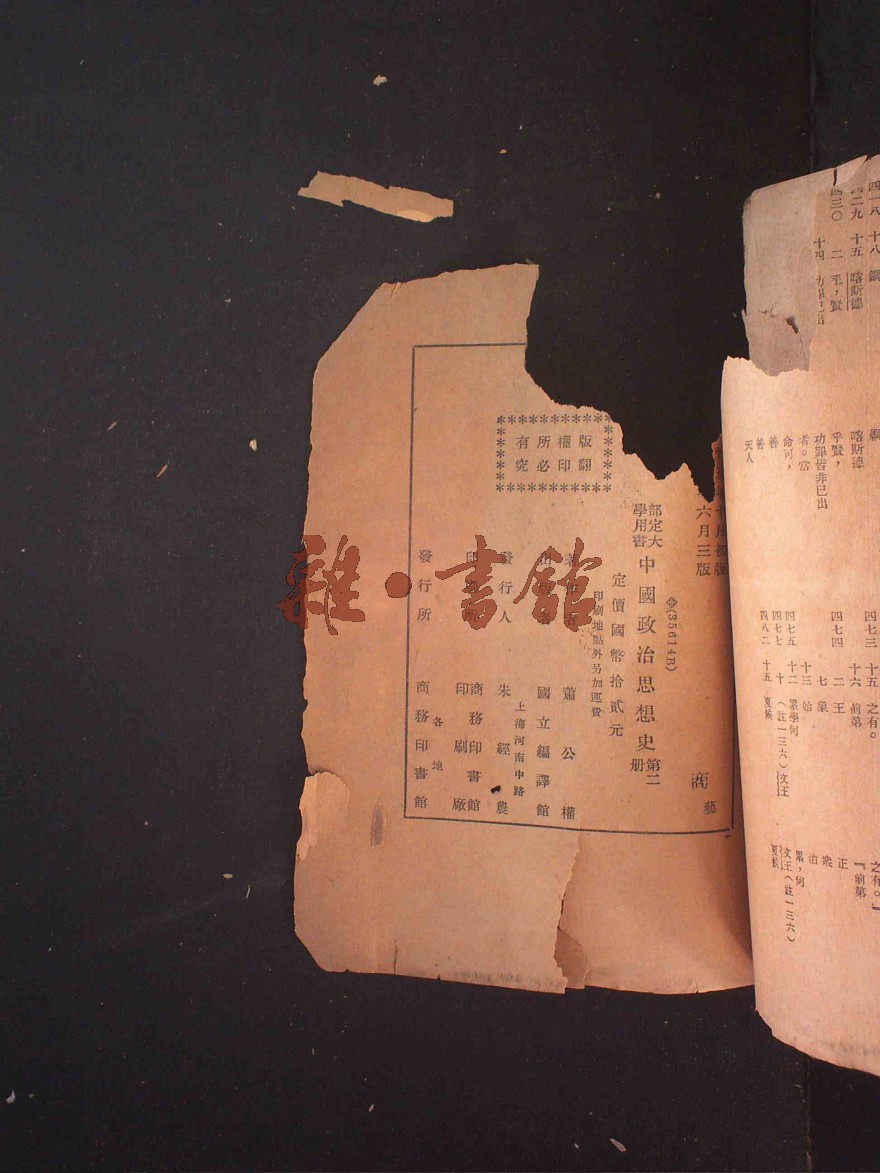 版權所有
翻印必究
六月三版
部定大
學用書
中國政治思想史
第二
册
(35614B)
定價國幣拾貳元
印刷地點外另加運費
蕭公權
國立編譯館
發行人
朱經農
上海河南中路
商務印書館
印刷廠
發行所
各地
商務印書館
藝
雜·書館
四一八 十八 鋼
四二九 十五 喀斯德
四三〇 二 乎，賢
十四
喀斯德
乎賢，
功罪皆非已出
者。當
命可，
善
善，
天人
四七三 十五 之有。
十六 前第
四七四 二 王
七 象
十三 始
四七五 十二 累學何
四七七 十 （註一三六）文王
四八二 十五 夏候
之有。』
『前第
正
衆
治
累，何
文王（註一三六）